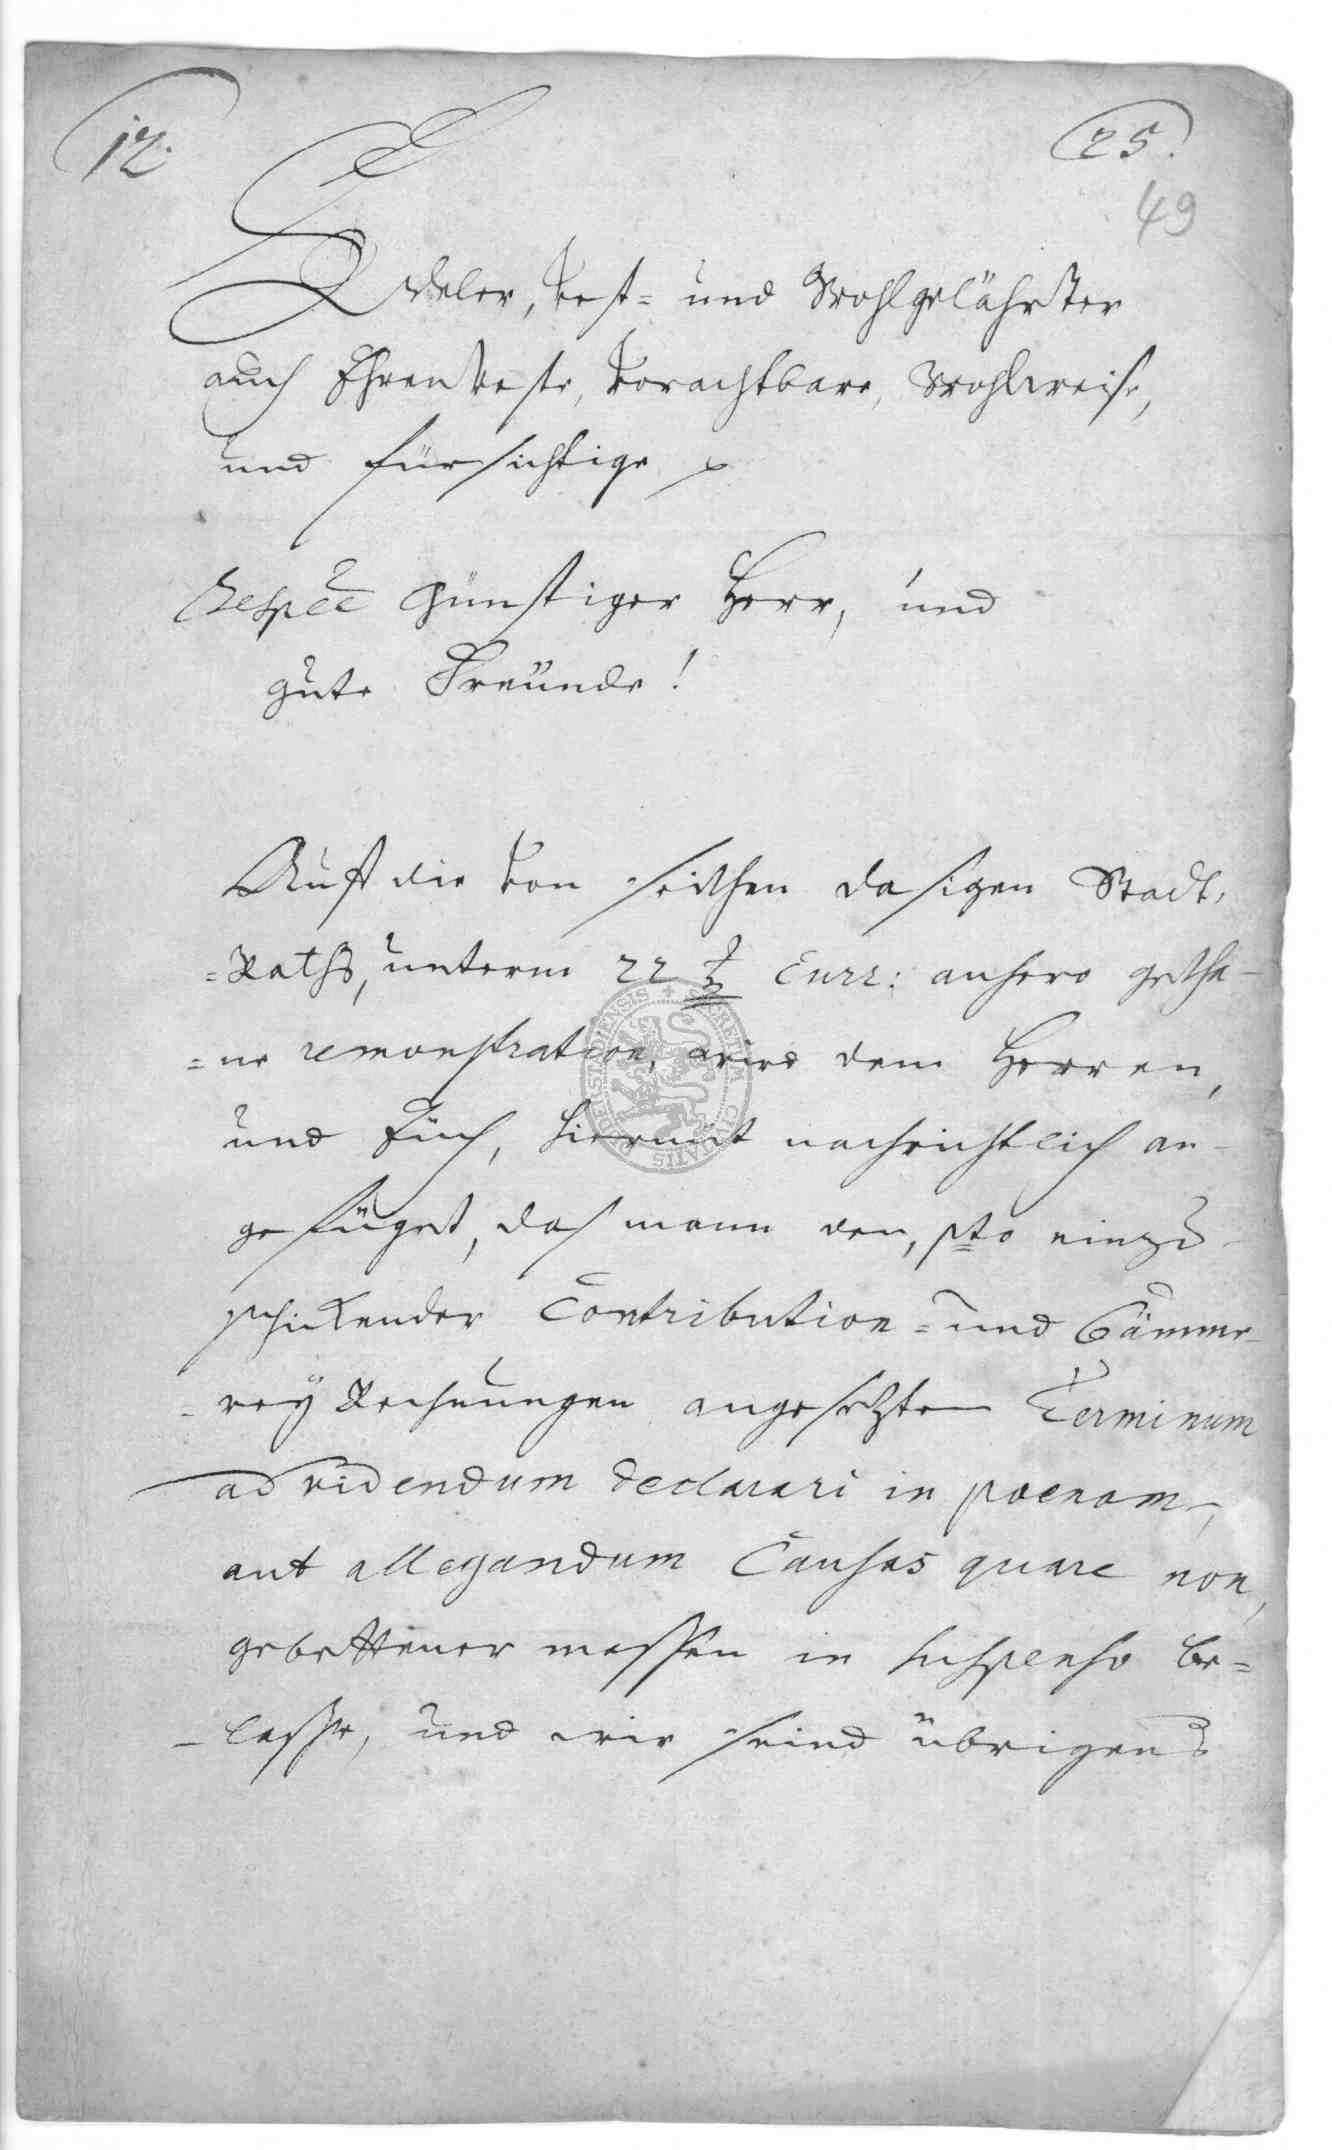 12.
25.
49
Edeler, Vest- und Wohlgelährter
auch Ehrenveste, Vorachtbare, Wohlweise,
und fürsichtige
Respee günstiger Herr, und
gute Freünde!
Auff die von seithen dasigen Stadt-
=Raths, unterm 22 Curr: anhero getha-
=ne remonstration, wird dem Herren,
und Euch, hiermit nachrichtlich an-
gefüget, das mann den, pto einzu-
schickender Contribution- und Cämme-
=rey Rechnungen angesetzten Terminum
ad videndum declarari in poenam,
aut allegandum Causas quare non,
gebettener massen in suspenso be=
-lasse, und wir seind übrigens